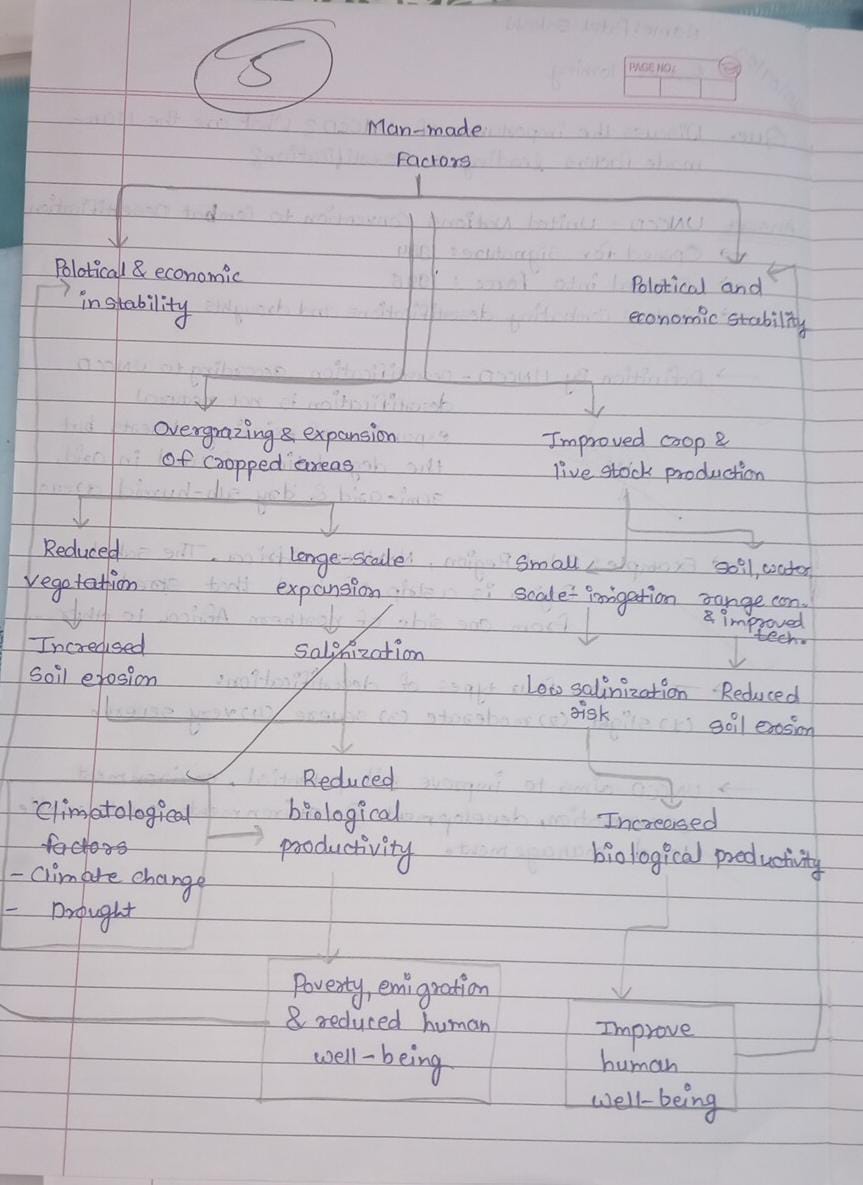 5
PAGE NO.:
Man-made
Factors
Polotical & economic
instability
Polotical and
economic stability
Overgrazing & expansion
of cropped areas
Improved crop &
live stock production
Reduced
vegetation
Lenge-scale
expansion
Small
scale-irrigation
soil, water
range con.
& improved
tech.
Increased
soil erosion
Salinization
Low salinization
risk
Reduced
soil erosion
Climatological
factors
- Climate change
- Drought
Reduced
biological
productivity
Increased
biological productivity
Poverty, emigration
& reduced human
well-being
Improve
human
well-being